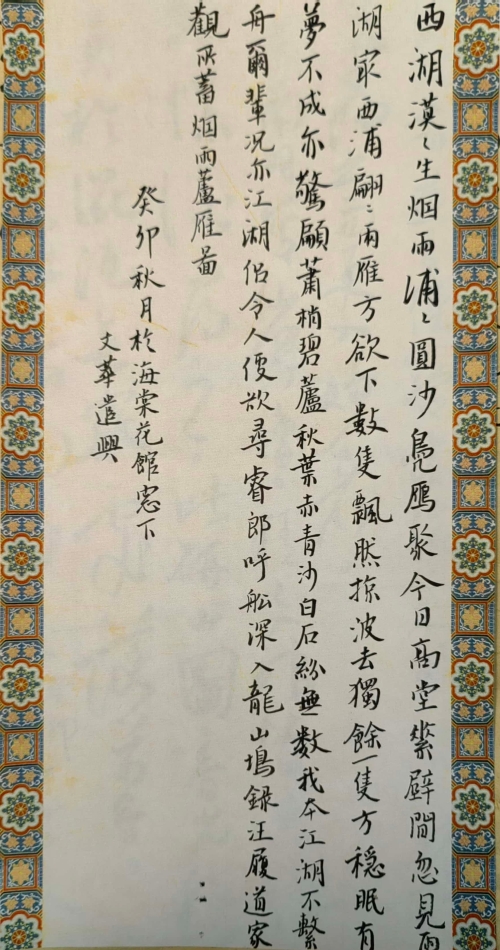 西湖漠〻生烟雨浦〻圓沙鳬鴈聚今日高堂素壁間忽見西
湖家西浦翩〻兩雁方欲下數隻飄然掠波去獨餘一隻方穩眠有
夢不成亦驚顧蕭梢碧蘆秋葉赤青沙白石紛無數我本江湖不繫
舟爾輩況亦江湖侣令人便欲尋睿郎呼舩深入龍山塢録汪履道家
觀所蓄烟雨蘆雁啚
癸卯秋月於海棠花館窓下
文華遣興